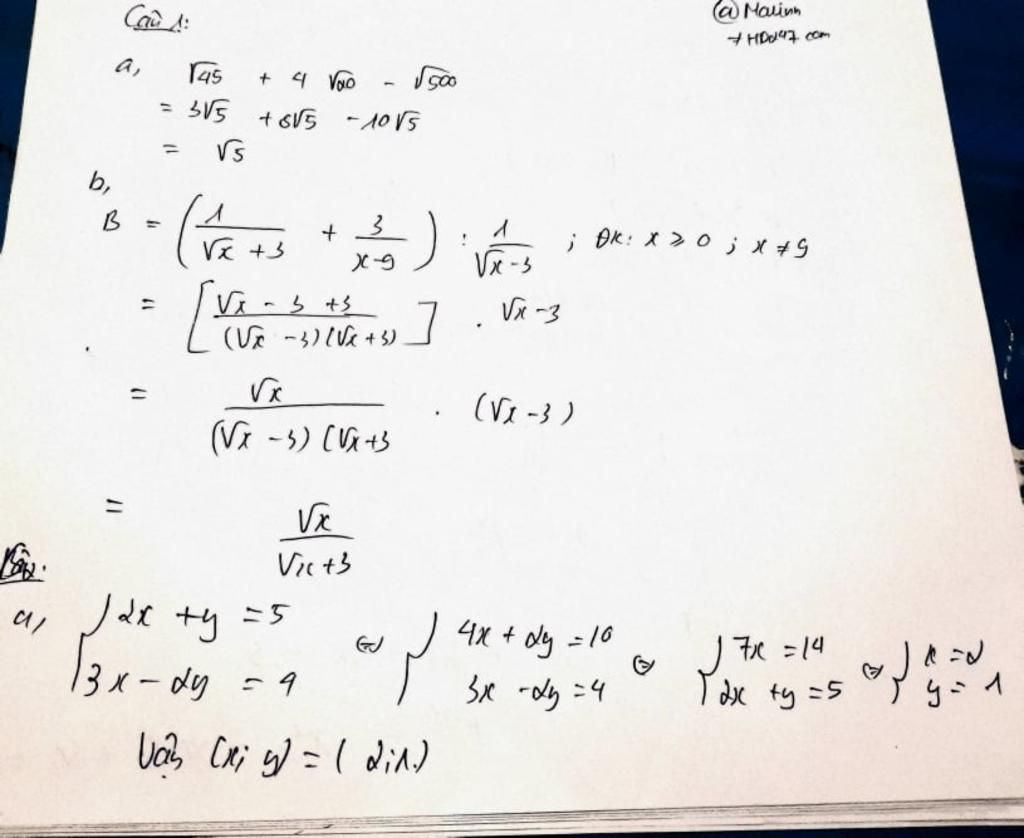 Câu 1:
@Malinh
→ HDol47 com
a, √45 + 4√20 - √500
= 3√5 + 8√5 - 10√5
= √5
b,
B = (1/(√x + 3) + 3/(x-9)) : 1/(√x-3) ; ĐK: x ≥ 0 ; x ≠ 9
= [(√x - 3 + 3)/((√x - 3)(√x + 3))] . √x - 3
= √x/((√x - 3)(√x + 3 . (√x - 3)
= √x/(√x + 3)
a, {2x + y = 5 ⇔ {4x + 2y = 10 ⇔ {7x = 14 ⇔ {x = 2
{3x - 2y = 4 {3x - 2y = 4 {2x + y = 5 {y = 1
Vậy (x; y) = (2; 1.)